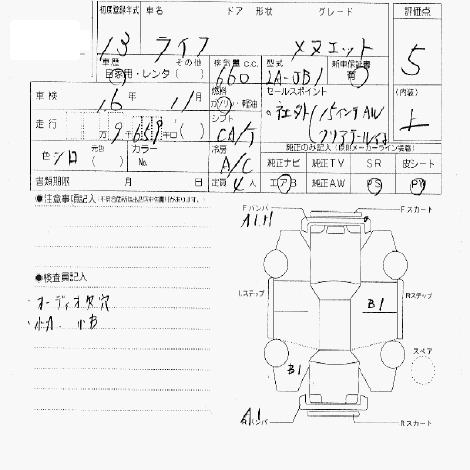 初度登録年式 車名 ドア 形状 グレード 評価点
13 ライフ メヌエット 5
車歴 その他 排気量 C.C. 型式 新車保証書
自家用・レンタ( ) 660 LA-JB1 有
車検 16年 11月 燃料 ガソリン・軽油 セールスポイント (内装)
社外15インチAW
走行 万 千キロ ( ) シフト CA/T
純正のみ記入
色 シロ 元色 ( ) カラーNo. 冷房 A/C
純正ナビ 純正TV SR 皮シート
書類期限 月 日 定員 4人 エアB 純正AW PS PW
●注意事項記入
Fバンパ Fスカート
A1
●検査員記入
オーディオ欠穴
小A 小B
Lステップ Rステップ
B1
スペア
B1
A1
Rバンパ Rスカート